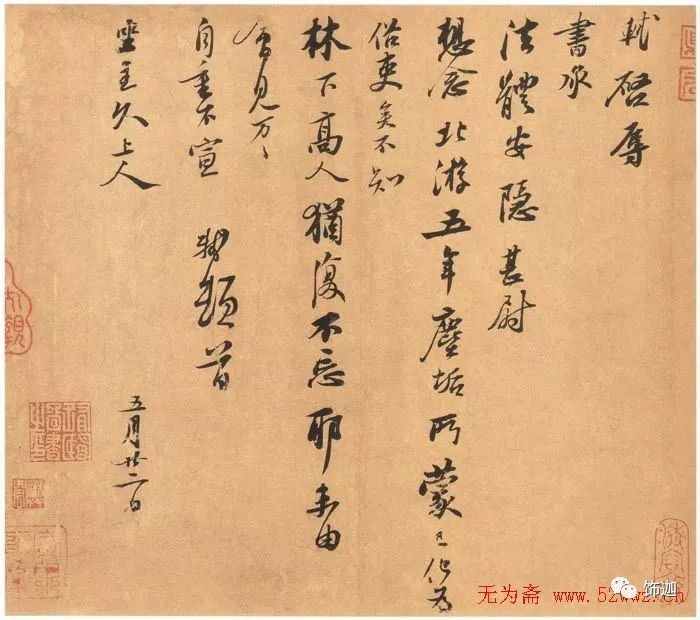 軾啓辱
書承
法體安隱甚尉
想念北游五年塵垢所蒙已化為
俗吏矣不知
林下高人猶復不忘耶未由
會見万〻
自重不宣 軾頓首
坐主久上人
五月廿二日
无为斋 www.52wwz.cn
饰迦